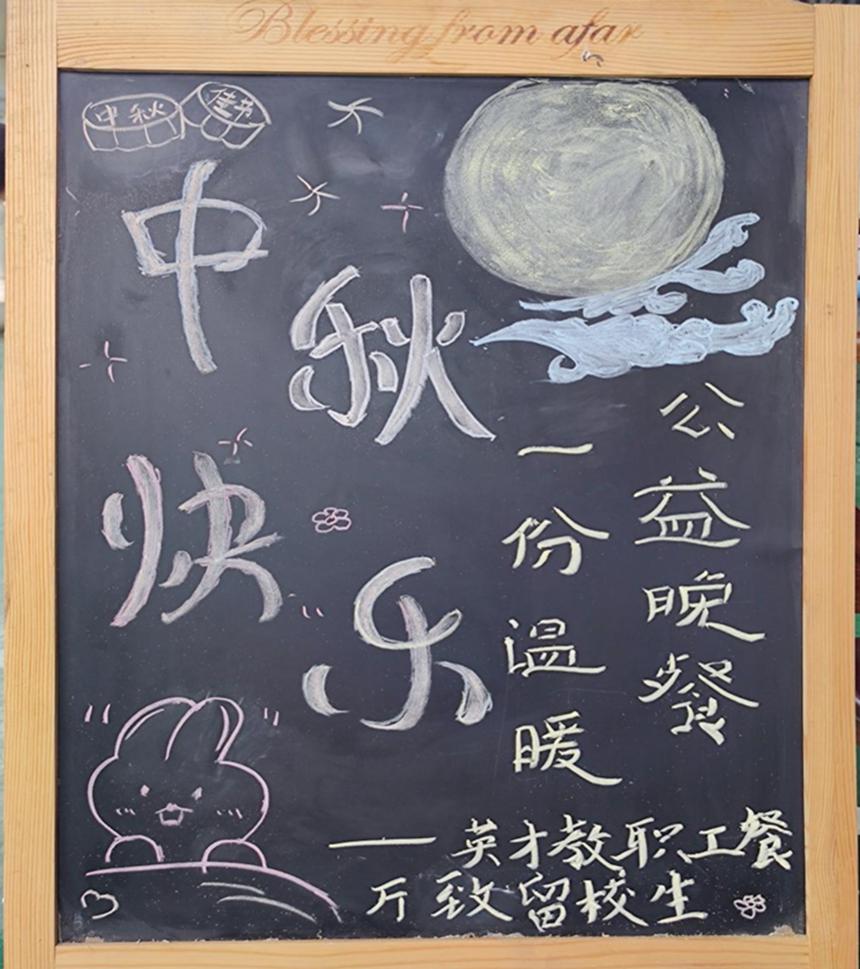 Blessing from afar
中秋
佳节
中秋
快乐
公益晚餐
一份温暖
——英才教职工餐
厅致留校生